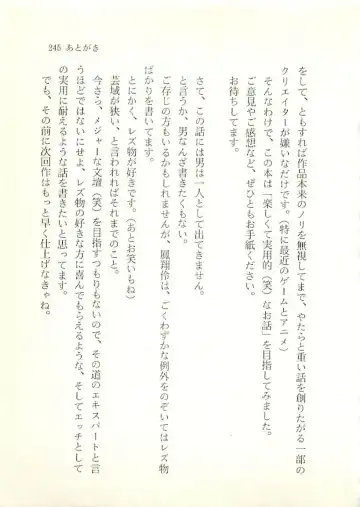 245 あとがき
をして、ともすれば作品本来のノリを無視してまで、やたらと重い話を創りたがる一部の
クリエイターが嫌いなだけです。（特に最近のゲームとアニメ）
そんなわけで、この本は「楽しくて実用的（笑）なお話」を目指してみました。
ご意見やご感想など、ぜひともお手紙ください。
お待ちしてます。
さて、この話には男は一人として出てきません。
と言うか、男なんざ書きたくもない。
ご存じの方もいるかもしれませんが、鳳翔伶は、ごくわずかな例外をのぞいてはレズ物
ばかりを書いてます。
とにかく、レズ物が好きです。（あとお笑いもね）
芸域が狭い、と言われればそれまでのこと。
今さら、メジャーな文壇（笑）を目指すつもりもないので、その道のエキスパートと言
うほどではないにせよ、レズ物の好きな方に喜んでもらえるような、そしてエッチとして
の実用に耐えるような話を書きたいと思ってます。
でも、その前に次回作はもっと早く仕上げなきゃね。